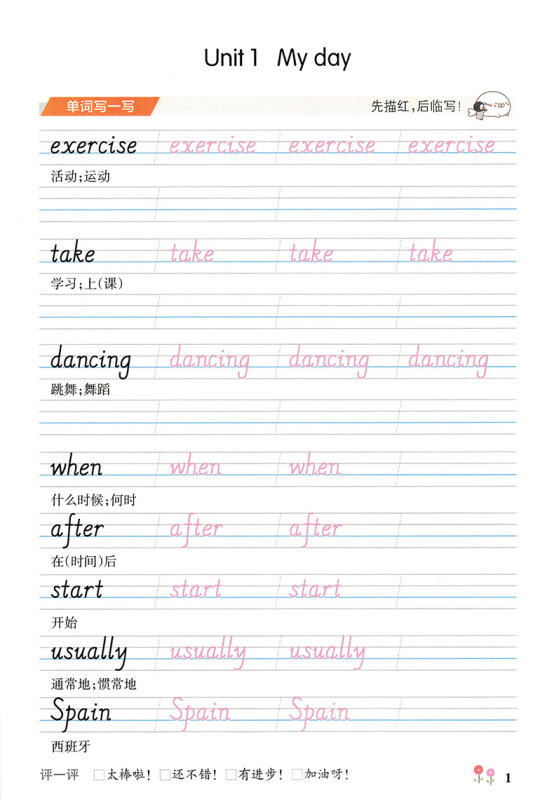 Unit 1 My day
单词写一写 先描红,后临写!
exercise exercise exercise exercise
活动;运动
take take take take
学习;上(课)
dancing dancing dancing dancing
跳舞;舞蹈
when when when
什么时候;何时
after after after
在(时间)后
start start start
开始
usually usually usually
通常地;惯常地
Spain Spain Spain
西班牙
评一评 □太棒啦! □还不错! □有进步! □加油呀! 1